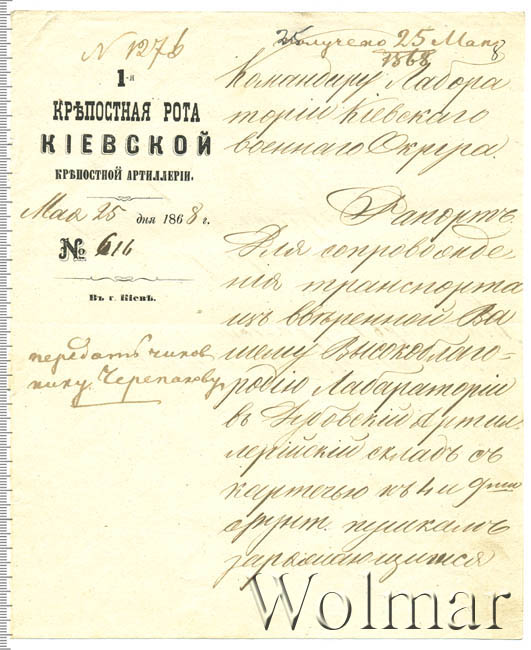 N 1276
1-я
КРѢПОСТНАЯ РОТА
КІЕВСКОЙ
КРѢПОСТНОЙ АРТИЛЛЕРІИ.
Мая 25 дня 1868 г.
№ 616
Въ г. Кіевѣ.
передать чинов
нику Черепахову
получено 25 Мая
1868
Командиру Лабора
торіи Кіевскаго
военнаго Округа.
Рапортъ
Для сопровожде
нія транспорта
изъ ввѣренной Ва
шему Высокоблаго-
родію Лабараторіи
въ Артил
лерійскій складъ съ
картечью къ 4 и 9
фунт. пушкамъ
заряжающимся
Wolmar